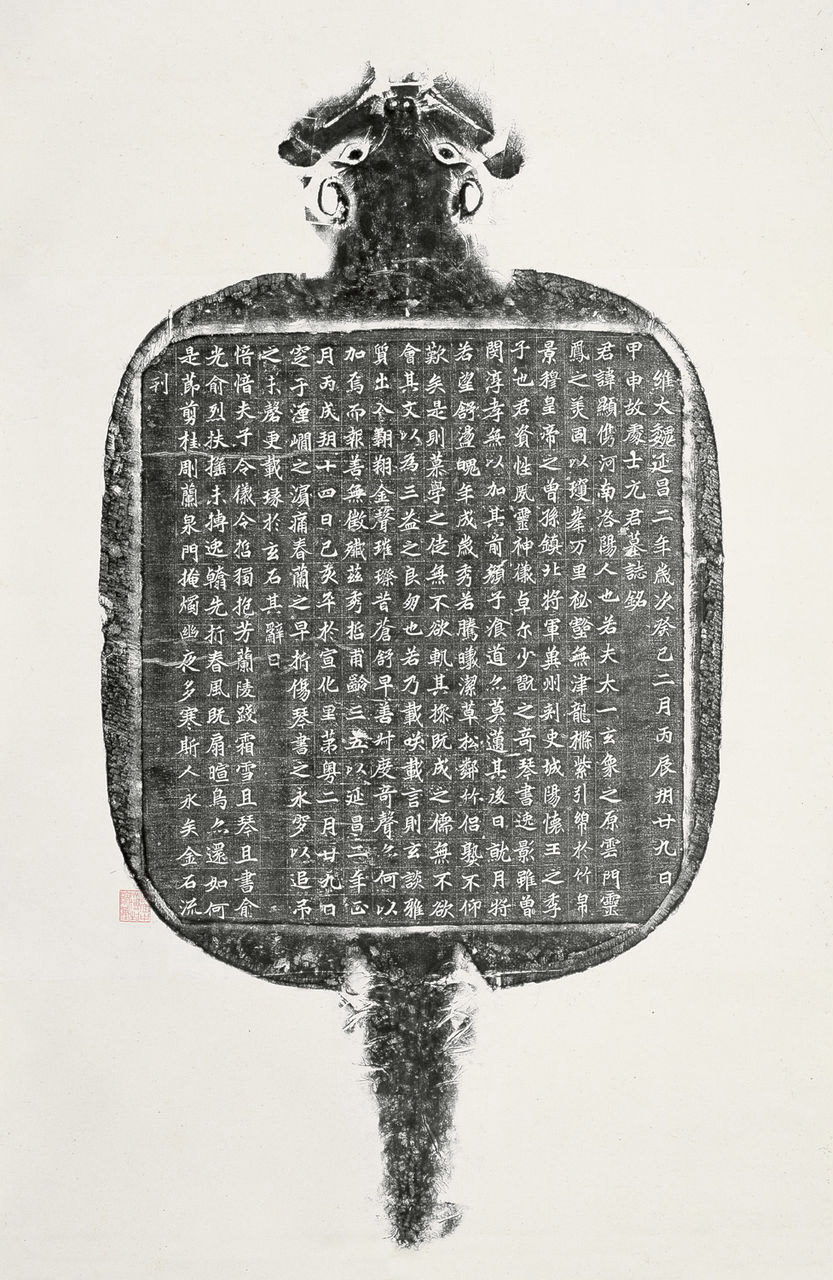 維大魏延昌二年歲次癸巳二月丙辰朔廿九日
甲申故處士元君墓誌銘
君諱顯儁河南洛陽人也若夫太一玄象之原雲門靈
鳳之美固以瓊峯万里祕壑無津龍櫾紫引綿於竹帛
景穆皇帝之曾孫鎮北將軍冀州刺史城陽懷王之季
子也君資性夙靈神儀卓尔少翫之奇琴書逸影雖曾
閔淳孝無以加其前顏子湌道亦莫邁其後日就月將
若望舒盪魄年成歲秀若騰曦潔草松鄰竹侶孰不仰
歎矣是則慕學之徒無不欲軌其操既成之儒無不欲
會其文以為三益之良朋也若乃載咲載言則玄談雅
質出入翱翔金聲璀璨昔蒼舒早善叶度奇聲亦何以
加焉而報善無徵殲茲秀哲甫齡三五以延昌二年正
月丙戌朔十四日己亥卒於宣化里第粵二月廿九日
窆于瀍澗之濱痛春蘭之早折傷琴書之永穸以追吊
之未磬更載琭於玄石其辭曰
愔愔夫子令儀令哲獨抱芳蘭陵踐霜雪且琴且書俞
光俞烈扶搖未摶逸轡先折春風既扇暄鳥亦還如何
是節剪桂彫蘭泉門掩燭幽夜多寒斯人永矣金石流
刊